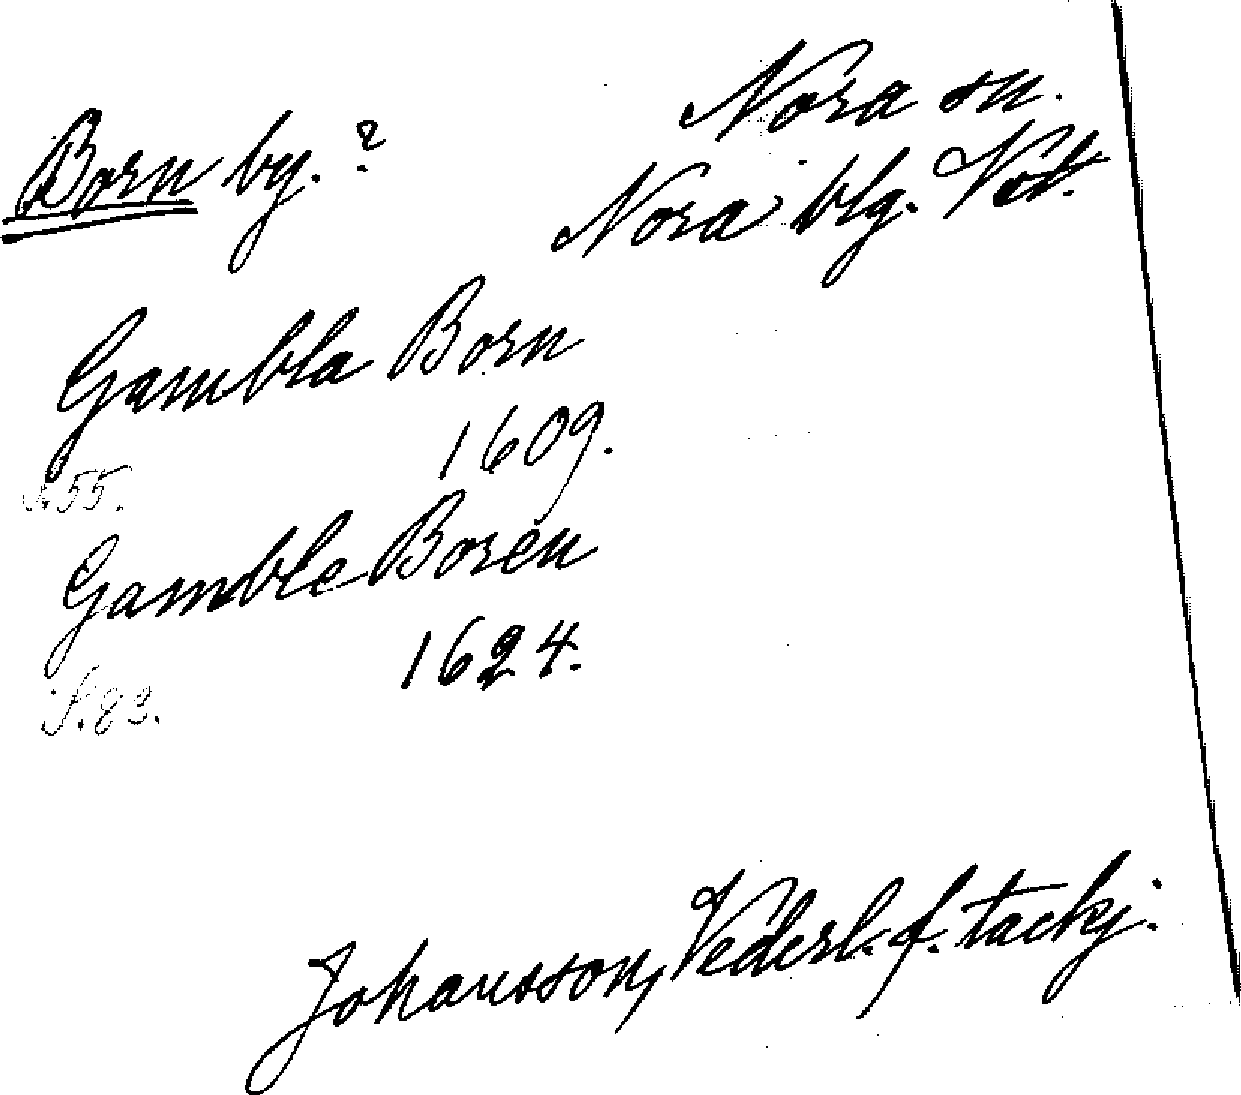 Born by.?
Nora sn.
Nora blg. Vst.
Gambla Born
1609.
S. 55.
Gamble Boren
1624.
S. 83.
Johansson, Vederl. f. tackj.